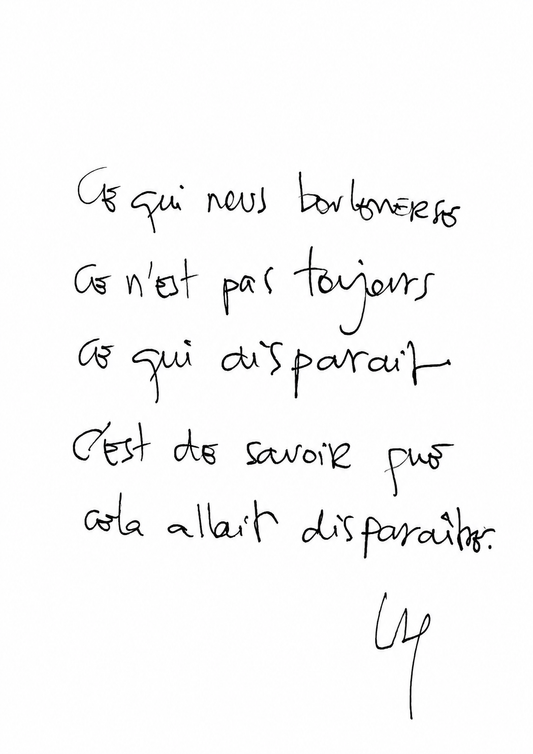 Ce qui nous bouleverse
Ce n'est pas toujours
Ce qui disparait
C'est de savoir que
cela allait disparaître.